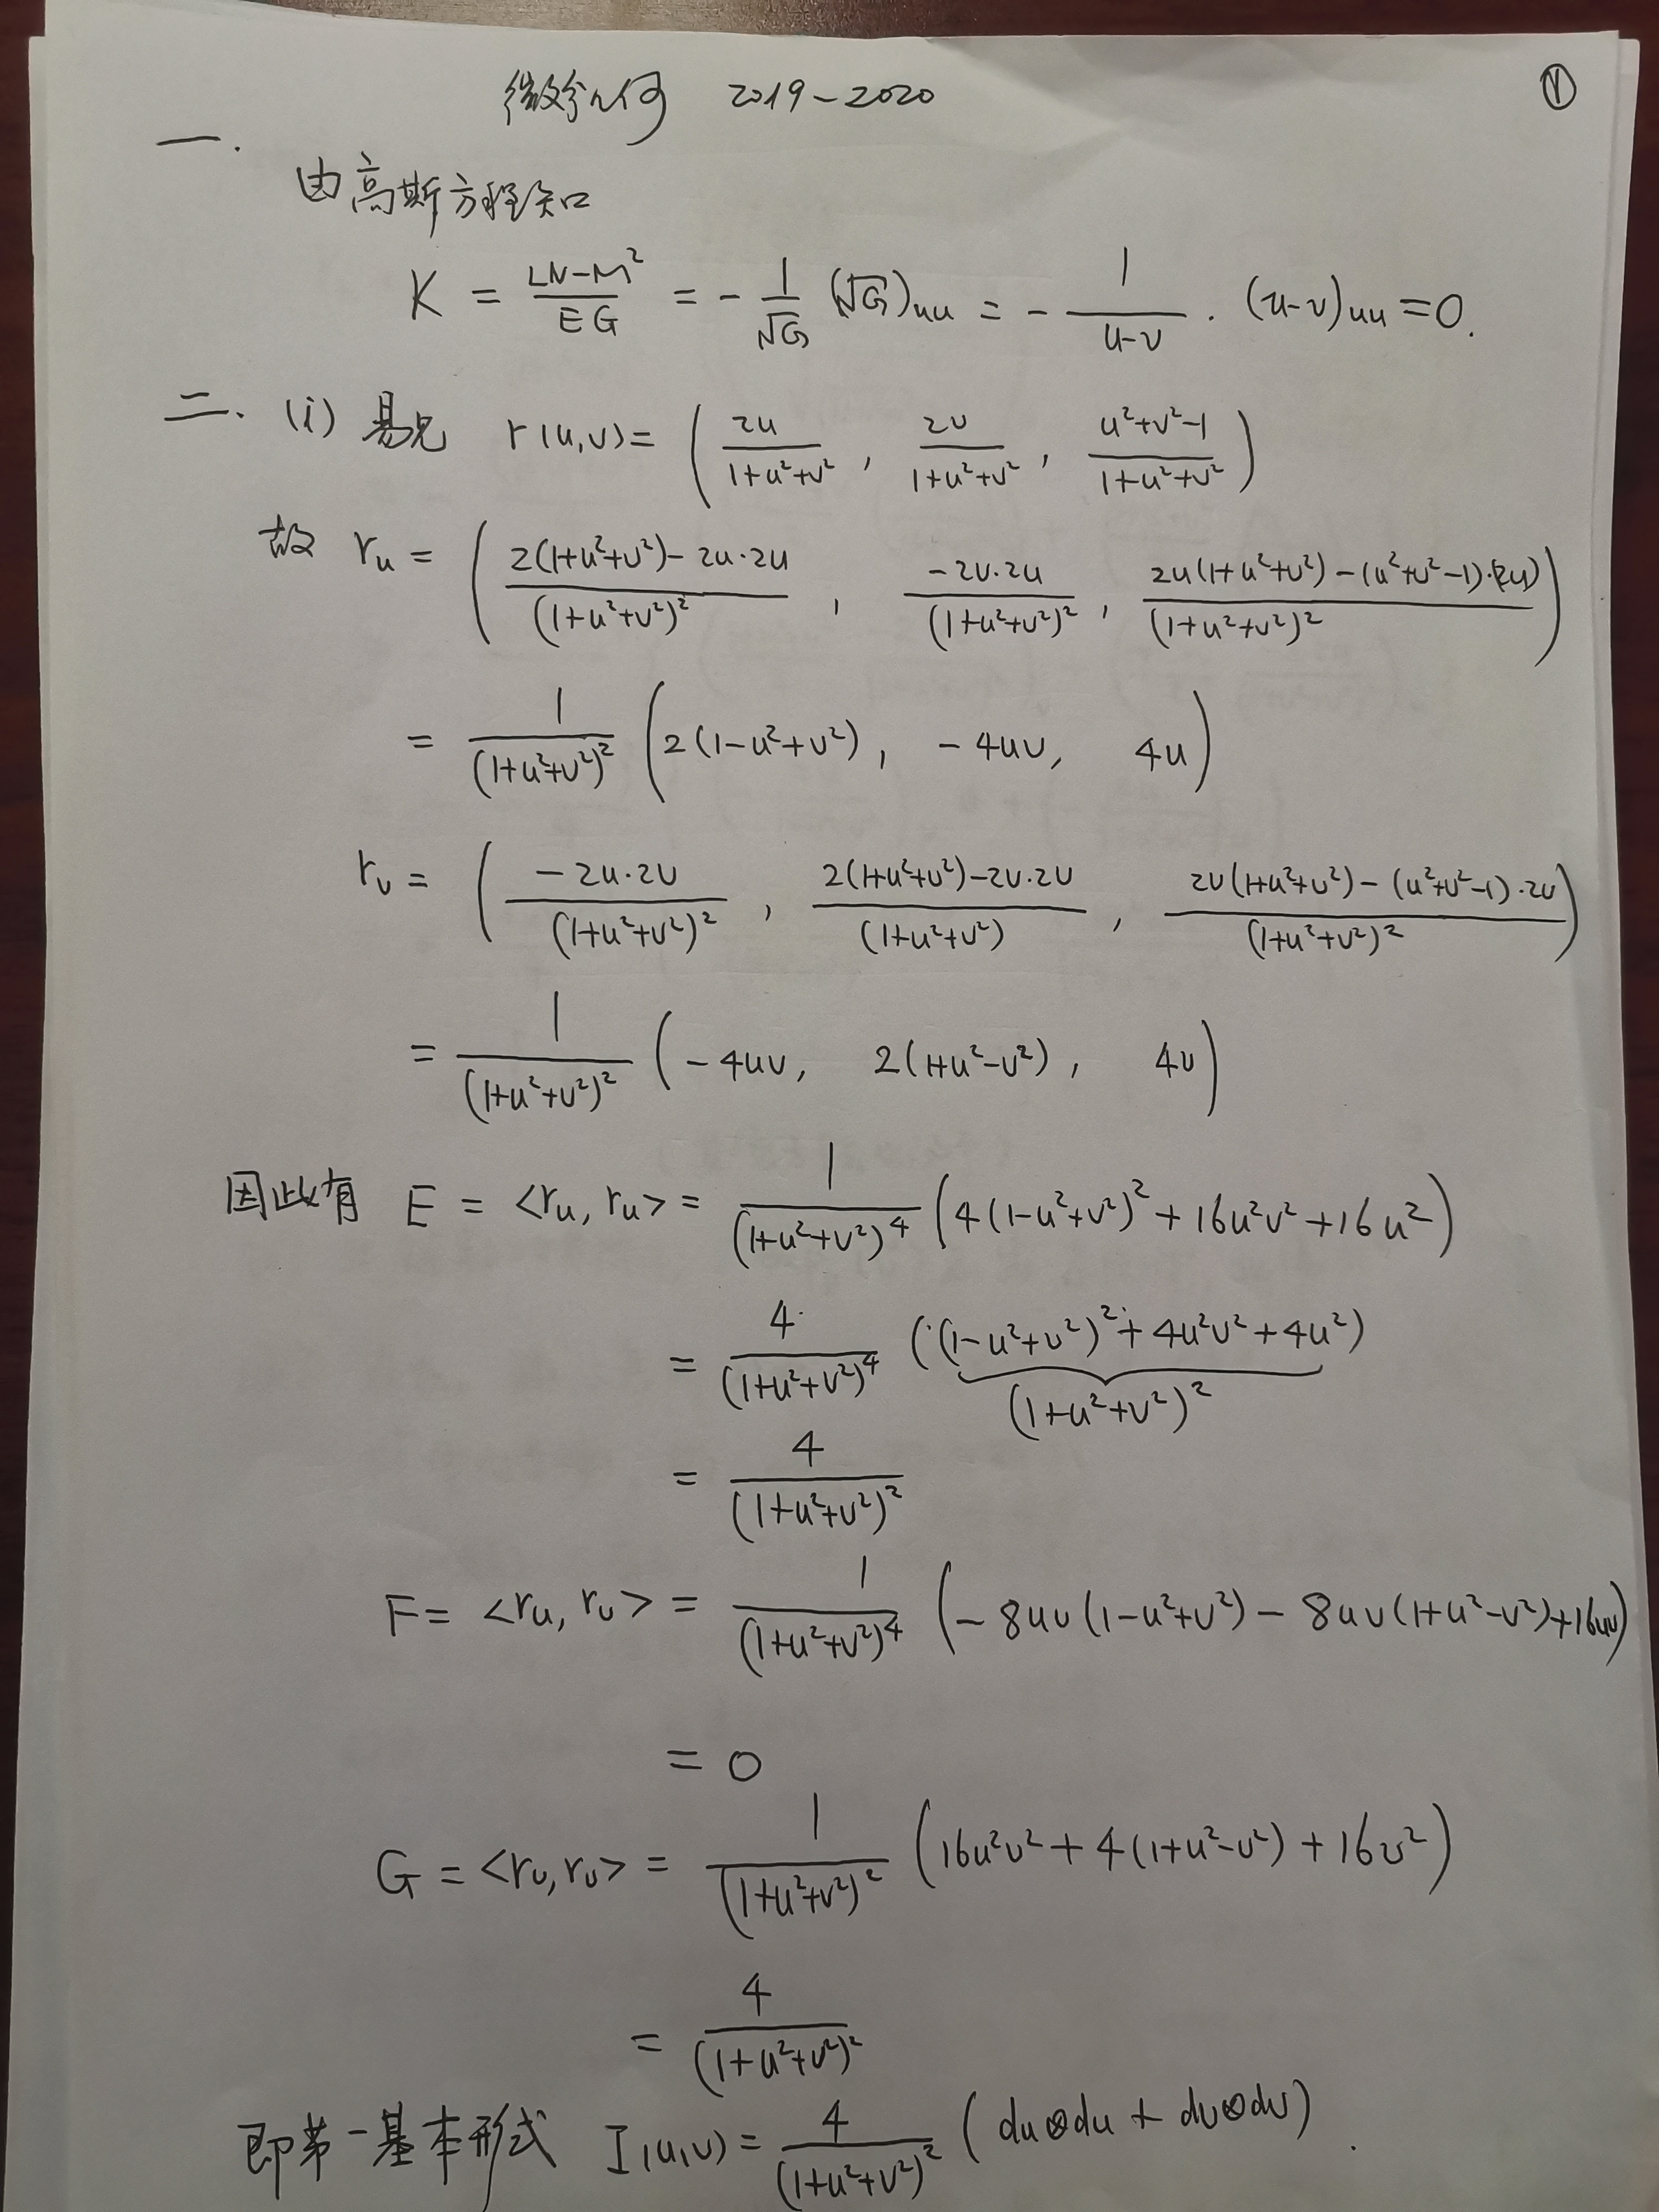 微分几何 2019-2020 ①
一.
由高斯方程知
K = \frac{LN-M^2}{EG} = -\frac{1}{\sqrt{G}} (\sqrt{G})_{uu} = -\frac{1}{u-v} \cdot (u-v)_{uu} = 0.
二. (i) 易见 r(u,v) = \left( \frac{2u}{1+u^2+v^2}, \frac{2v}{1+u^2+v^2}, \frac{u^2+v^2-1}{1+u^2+v^2} \right)
故 r_u = \left( \frac{2(1+u^2+v^2)-2u \cdot 2u}{(1+u^2+v^2)^2}, \frac{-2v \cdot 2u}{(1+u^2+v^2)^2}, \frac{2u(1+u^2+v^2)-(u^2+v^2-1) \cdot (2u)}{(1+u^2+v^2)^2} \right)
= \frac{1}{(1+u^2+v^2)^2} \left( 2(1-u^2+v^2), -4uv, 4u \right)
r_v = \left( \frac{-2u \cdot 2v}{(1+u^2+v^2)^2}, \frac{2(1+u^2+v^2)-2v \cdot 2v}{(1+u^2+v^2)}, \frac{2v(1+u^2+v^2)-(u^2+v^2-1) \cdot 2v}{(1+u^2+v^2)^2} \right)
= \frac{1}{(1+u^2+v^2)^2} \left( -4uv, 2(1+u^2-v^2), 4v \right)
因此有 E = <r_u, r_u> = \frac{1}{(1+u^2+v^2)^4} \left( 4(1-u^2+v^2)^2 + 16u^2v^2 + 16u^2 \right)
= \frac{4}{(1+u^2+v^2)^4} ( \underbrace{(1-u^2+v^2)^2 + 4u^2v^2 + 4u^2}_{(1+u^2+v^2)^2} )
= \frac{4}{(1+u^2+v^2)^2}
F = <r_u, r_v> = \frac{1}{(1+u^2+v^2)^4} \left( -8uv(1-u^2+v^2) - 8uv(1+u^2-v^2) + 16uv \right)
= 0
G = <r_v, r_v> = \frac{1}{(1+u^2+v^2)^2} \left( 16u^2v^2 + 4(1+u^2-v^2) + 16v^2 \right)
= \frac{4}{(1+u^2+v^2)^2}
即第一基本形式 I(u,v) = \frac{4}{(1+u^2+v^2)^2} ( du⊗du + dv⊗dv ).